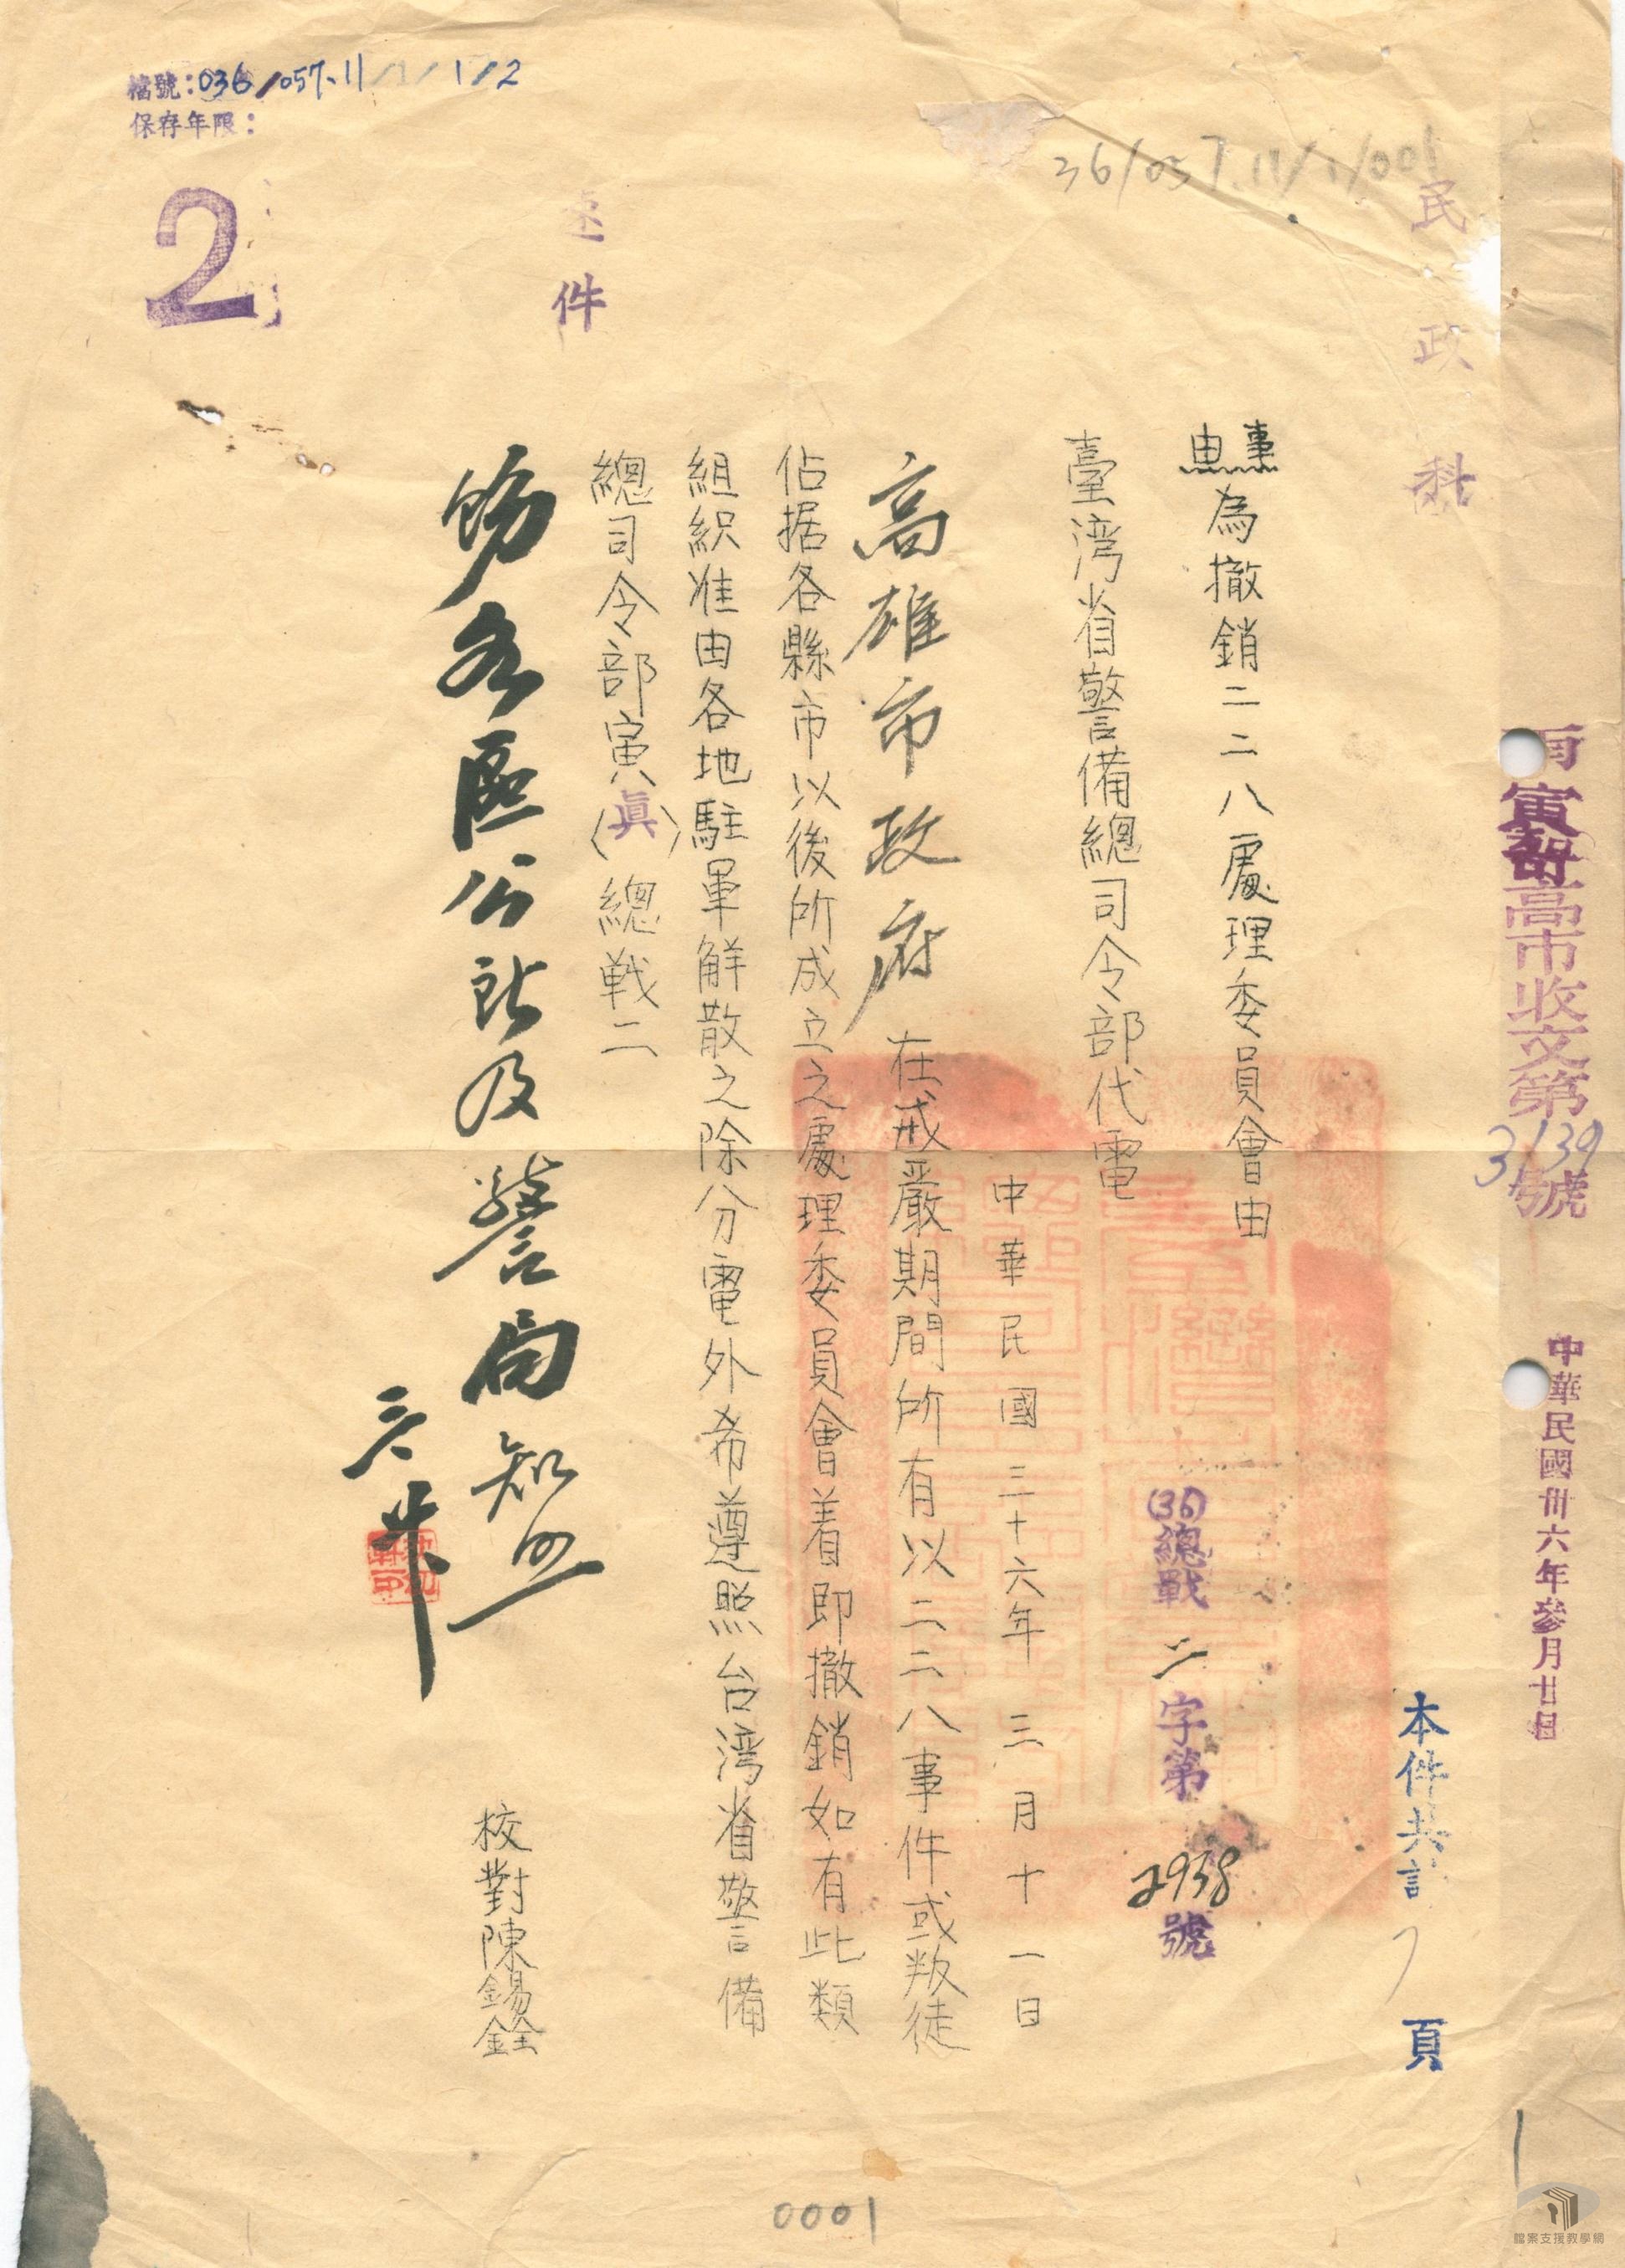 檔號：036/057.11/1/1/2
保存年限：
36/057.11/1/001
2
件
民政科
寅
高市收文第3139號
中華民國卅六年參月廿日
本件共計1頁
事由 為撤銷二二八處理委員會由
臺湾省警備總司令部代電
(36)總戰二字第2938號
中華民國三十六年三月十一日
高雄市政府 在戒嚴期間所有以二二八事件或叛徒
佔据各縣市以後所成立之處理委員會着即撤銷如有此類
組織准由各地駐軍解散之除分電外希遵照台湾省警備
總司令部寅(真)總戦二
飭各區公所及警局知照
三、廿
校對陳錫銓
0001
檔案支援教學網